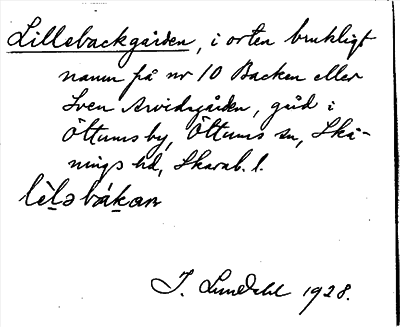 Lillebackgården, i orten brukligt
namn på nr 10 Backen eller
Sven Arvidsgården, gård i
Öttums by, Öttums sn, Skå-
nings hd, Skarab. l.
lèləbákan
I. Lundahl 1928.